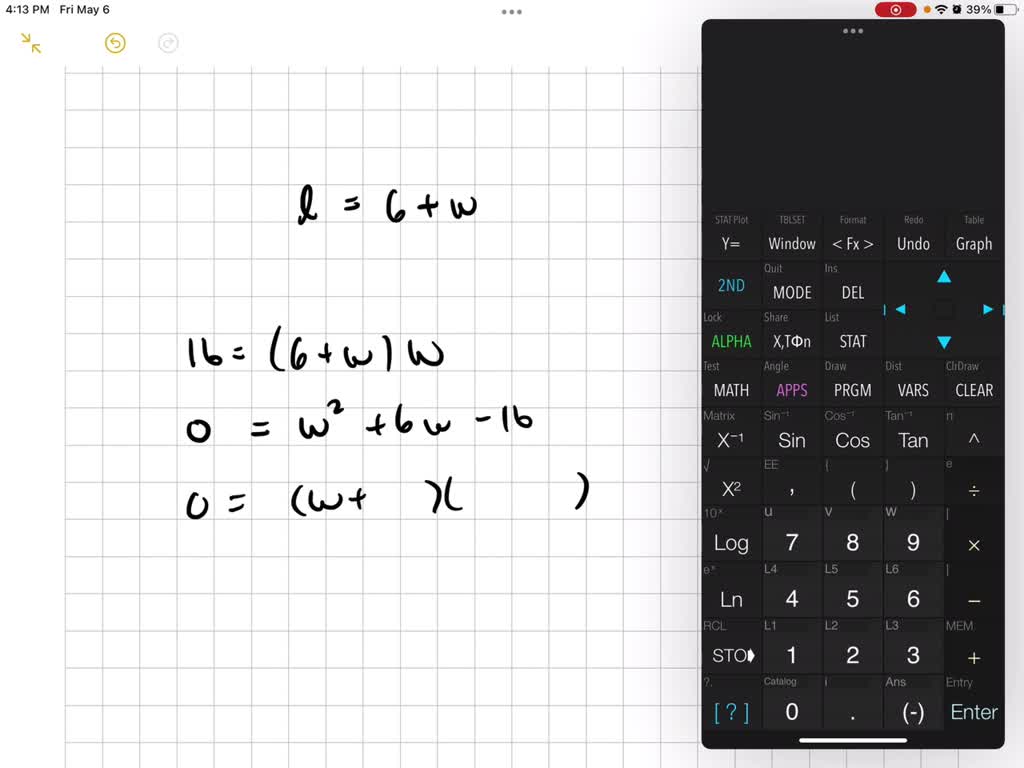 4:13 PM Fri May 6
39%
l = 6 + w
16 = (6 + w) w
0 = w² + 6w - 16
0 = (w + )( )
STAT Plot TBLSET Format Redo Table
Y= Window < Fx > Undo Graph
Quit Ins
2ND MODE DEL
Lock Share List
ALPHA X,TΦn STAT
Test Angle Draw Dist ClrDraw
MATH APPS PRGM VARS CLEAR
Matrix Sin⁻¹ Cos⁻¹ Tan⁻¹ π
X⁻¹ Sin Cos Tan ^
√ EE { } e
X² , ( ) ÷
10ˣ u v w |
Log 7 8 9 ×
eˣ L4 L5 L6 |
Ln 4 5 6 −
RCL L1 L2 L3 MEM
STO 1 2 3 +
?. Catalog i Ans Entry
[ ? ] 0 . (-) Enter